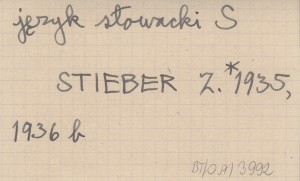 język słowacki S
STIEBER Z. *1935,
1936 b
3992